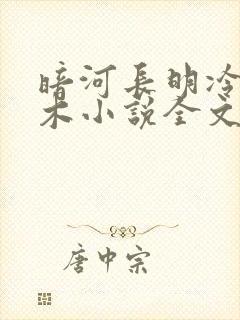 暗河長明冷
木小說全文
唐中宗